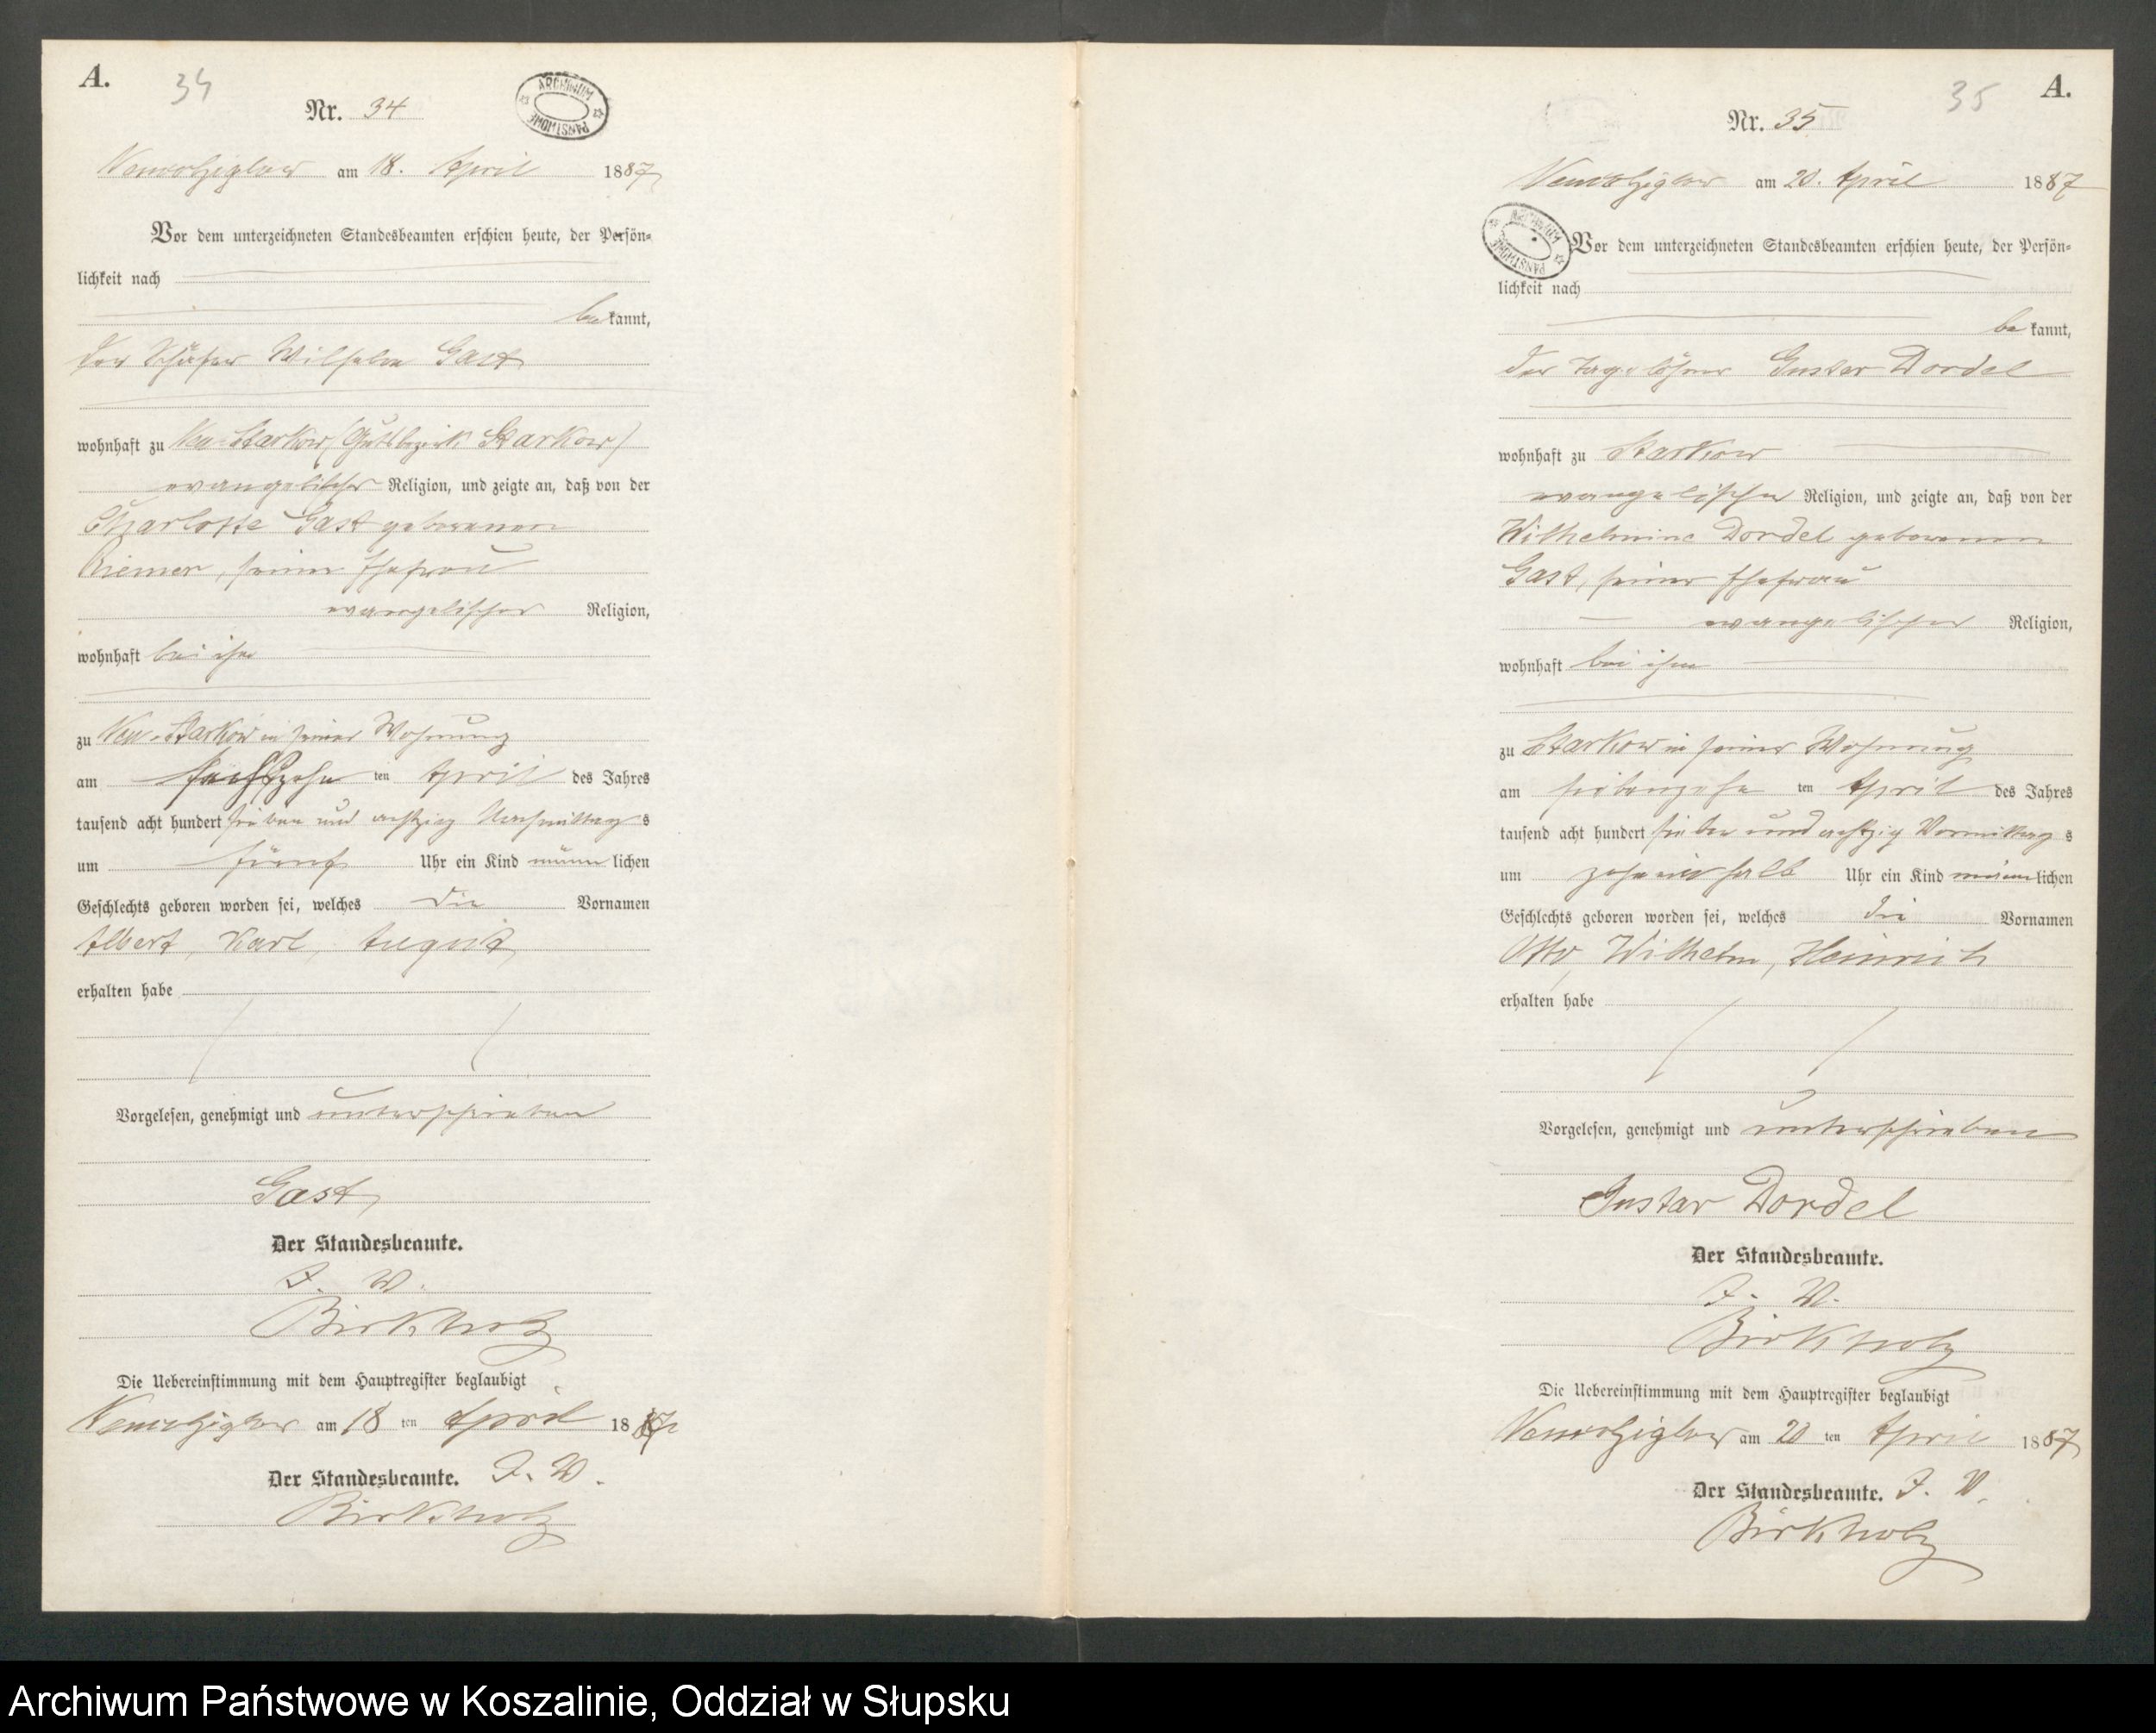 A.
34
Nr. 34
ARCHIWUM PAŃSTWOWE
am 18. April 1887
Vor dem unterzeichneten Standesbeamten erschien heute, der Persön-
lichkeit nach
be kannt,
der Schäfer Wilhelm Gast
wohnhaft zu Neu-Starkow (Gutsbezirk Starkow)
evangelischer Religion, und zeigte an, daß von der
Charlotte Gast geborenen
Riemer, seiner Ehefrau
evangelischer Religion,
wohnhaft bei ihm
zu Neu-Starkow in seiner Wohnung
am ten April des Jahres
tausend acht hundert sieben und achtzig Nachmittag s
um fünf Uhr ein Kind männ lichen
Geschlechts geboren worden sei, welches die Vornamen
Albert, Karl, August
erhalten habe
Vorgelesen, genehmigt und unterschrieben
Gast
Der Standesbeamte.
J. V.
Birkholz
Die Uebereinstimmung mit dem Hauptregister beglaubigt
am 18 ten April 1887
Der Standesbeamte. J. V.
Birkholz
35
A.
Nr. 35
am 20. April 1887
ARCHIWUM PAŃSTWOWE
Vor dem unterzeichneten Standesbeamten erschien heute, der Persön-
lichkeit nach
be kannt,
der Tagelöhner Gustav Dordel
wohnhaft zu Starkow
evangelischer Religion, und zeigte an, daß von der
Wilhelmine Dordel geborenen
Gast, seiner Ehefrau
evangelischer Religion,
wohnhaft bei ihm
zu Starkow in seiner Wohnung
am siebenzehn ten April des Jahres
tausend acht hundert sieben und achtzig Vormittag s
um zehneinhalb Uhr ein Kind männ lichen
Geschlechts geboren worden sei, welches die Vornamen
Otto, Wilhelm, Heinrich
erhalten habe
Vorgelesen, genehmigt und unterschrieben
Gustav Dordel
Der Standesbeamte.
J. V.
Birkholz
Die Uebereinstimmung mit dem Hauptregister beglaubigt
am 20 ten April 1887
Der Standesbeamte. J. V.
Birkholz
Archiwum Państwowe w Koszalinie, Oddział w Słupsku